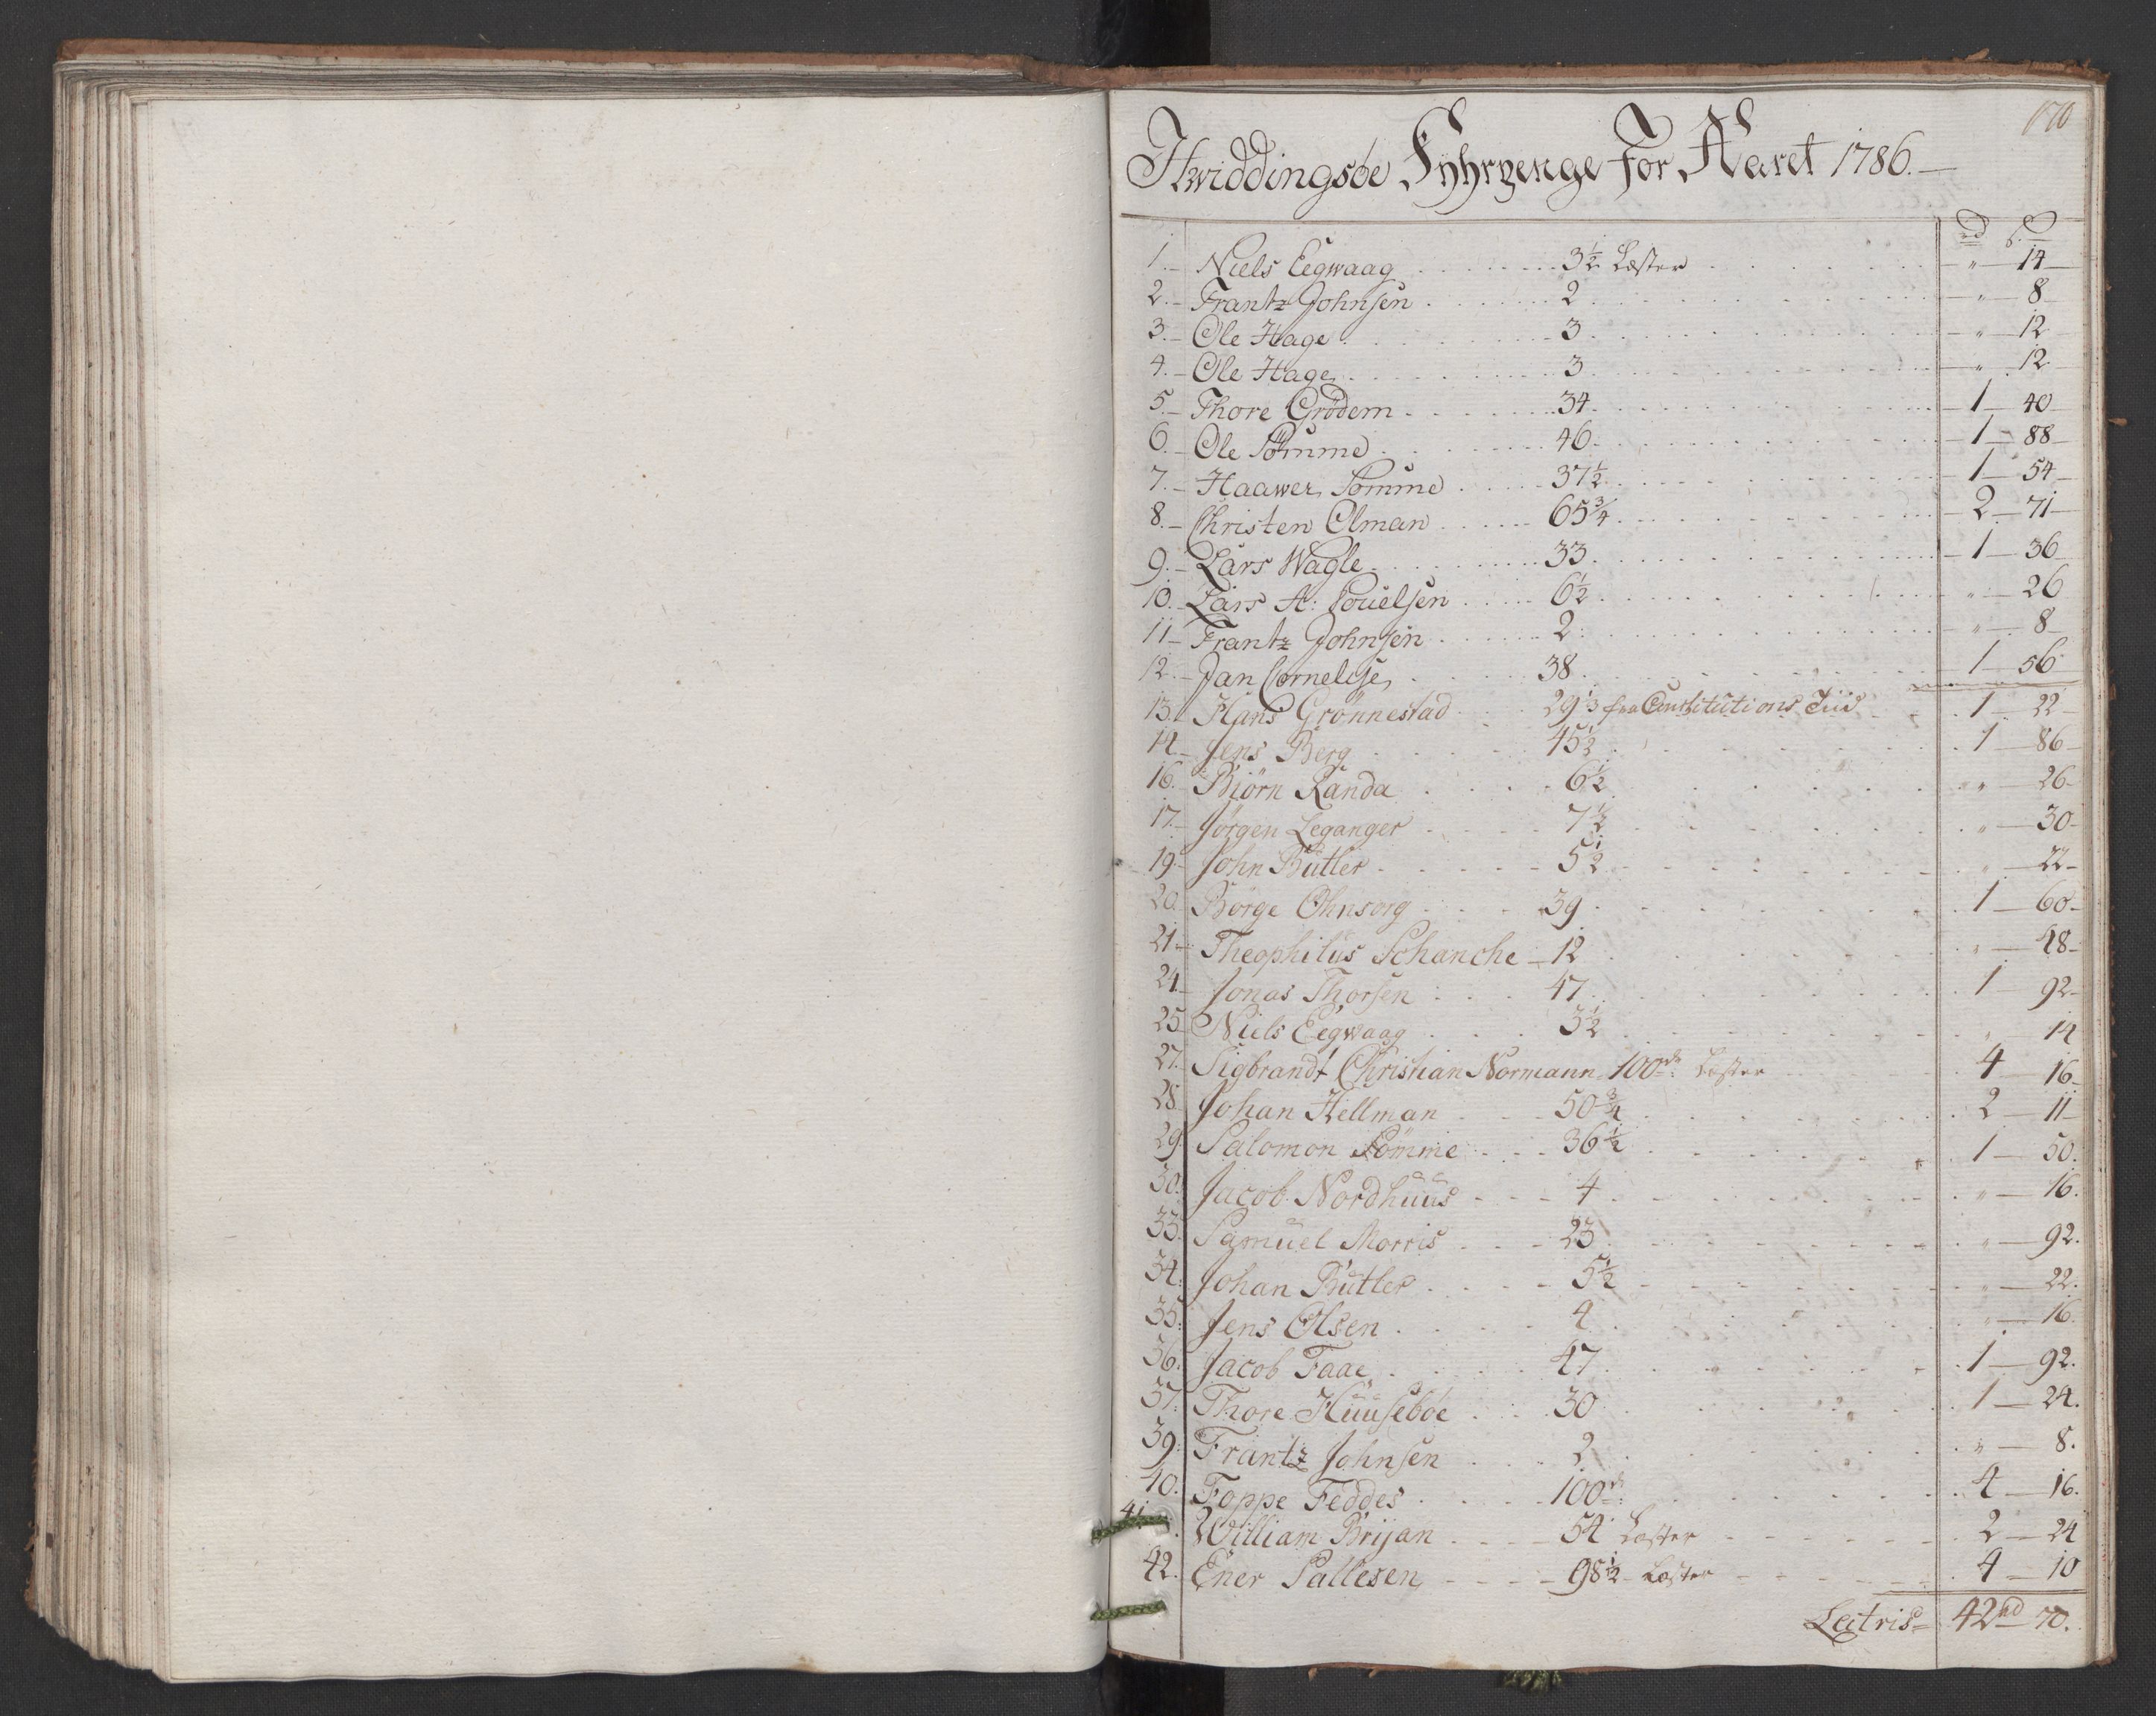 170
Hwiddingsøe Fyhrpenge For Aaret 1786.—
rd s.
1.— Niels Eegwaag . . . . 3½ Læster . . . . " — 14
2.— Frantz Johnsen . . . . 2 . . . . " — 8
3.— Ole Hage . . . . 3 . . . . " — 12
4.— Ole Hage . . . . 3 . . . . " — 12
5.— Thore Grødem . . . . 34 . . . . 1 — 40
6.— Ole Sømme . . . . 46 . . . . 1 — 88
7.— Haawer Sømme . . . . 37½ . . . . 1 — 54
8.— Christen Olman . . . . 65¾ . . . . 2 — 71
9.— Lars Wagle . . . . 33 . . . . 1 — 36
10.— Lars A: Pouelsen . . . . 6½ . . . . " — 26
11— Frantz Johnsen . . . . 2 . . . . " — 8
12.— Jan Cornelise . . . . 38 . . . . 1 — 56
13. Hans Grønnestad . . . . 29⅓ fra Constitutions Tiid . . 1 — 22
14— Jens Berg . . . . 45½ . . . . 1 — 86
16. Biørn Randa . . . . 6½ . . . . " — 26
17.— Jørgen Leganger . . . . 7½ . . . . " — 30
19.— John Butler . . . . 5½ . . . . " — 22
20. Børge Ohnsorg . . . . 39 . . . . 1 — 60
21— Theophilus Schanche — 12 . . . . " — 48
24.— Jonas Thorsen . . . . 47 . . . . 1 — 92
25. Niels Eegwaag . . . . 3½ . . . . " 14
27. Sigbrandt Christian Normann 100de: Læster . . . . 4 — 16
28. Johan Hellman . . . . 50¾ . . . . 2 — 11
29. Salomon Sømme . . . . 36½ . . . . 1 — 50.
30. Jacob Nordhuus . . . . 4 . . . . " — 16.
33. Samuel Morris . . . . 23 . . . . " — 92.
34. Johan Butler . . . . 5½ . . . . " — 22.
35. Jens Olsen . . . . 4 . . . . " — 16.
36. Jacob Faae . . . . 47 . . . . 1 — 92.
37. Thore Huusebøe . . . . 30 . . . . 1 — 24.
39. Frantz Johnsen . . . . 2 . . . . " — 8.
40. Foppe Feddes . . . . 100de: . . . . 4 — 16.
41. William Brijan . . . . 54 Læster . . . . 2 — 24
42. Ener Pallesen . . . . 98½ Læster . . . . 4 — 10
Latris= 42rd 70.